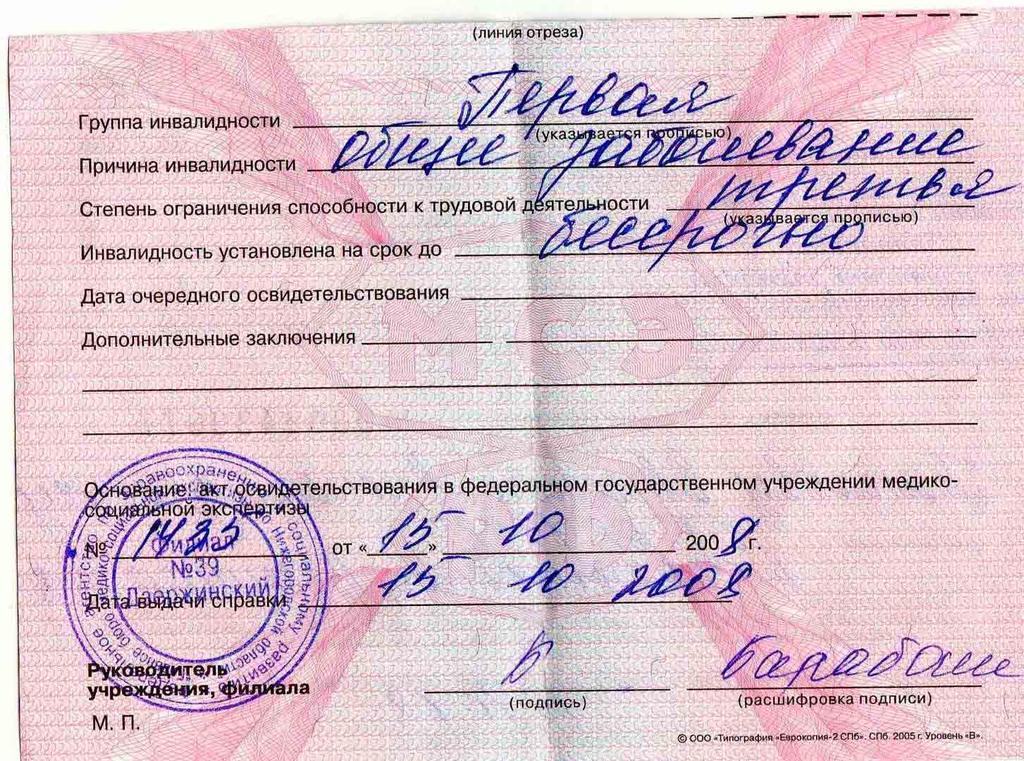 (линия отреза)
Группа инвалидности Первая
(указывается прописью)
Причина инвалидности общее заболевание
Степень ограничения способности к трудовой деятельности третья
(указывается прописью)
Инвалидность установлена на срок до бессрочно
Дата очередного освидетельствования
Дополнительные заключения
МСЭ
Основание: акт освидетельствования в федеральном государственном учреждении медико-
социальной экспертизы
№ 1435 от «15» 10 2008 г.
Филиал
№39
Дзержинский
Дата выдачи справки 15 10 2008
Руководитель
учреждения, филиала
(подпись)
(расшифровка подписи)
М. П.
© ООО «Типография «Еврокопия-2 СПб». СПб. 2005 г. Уровень «В».